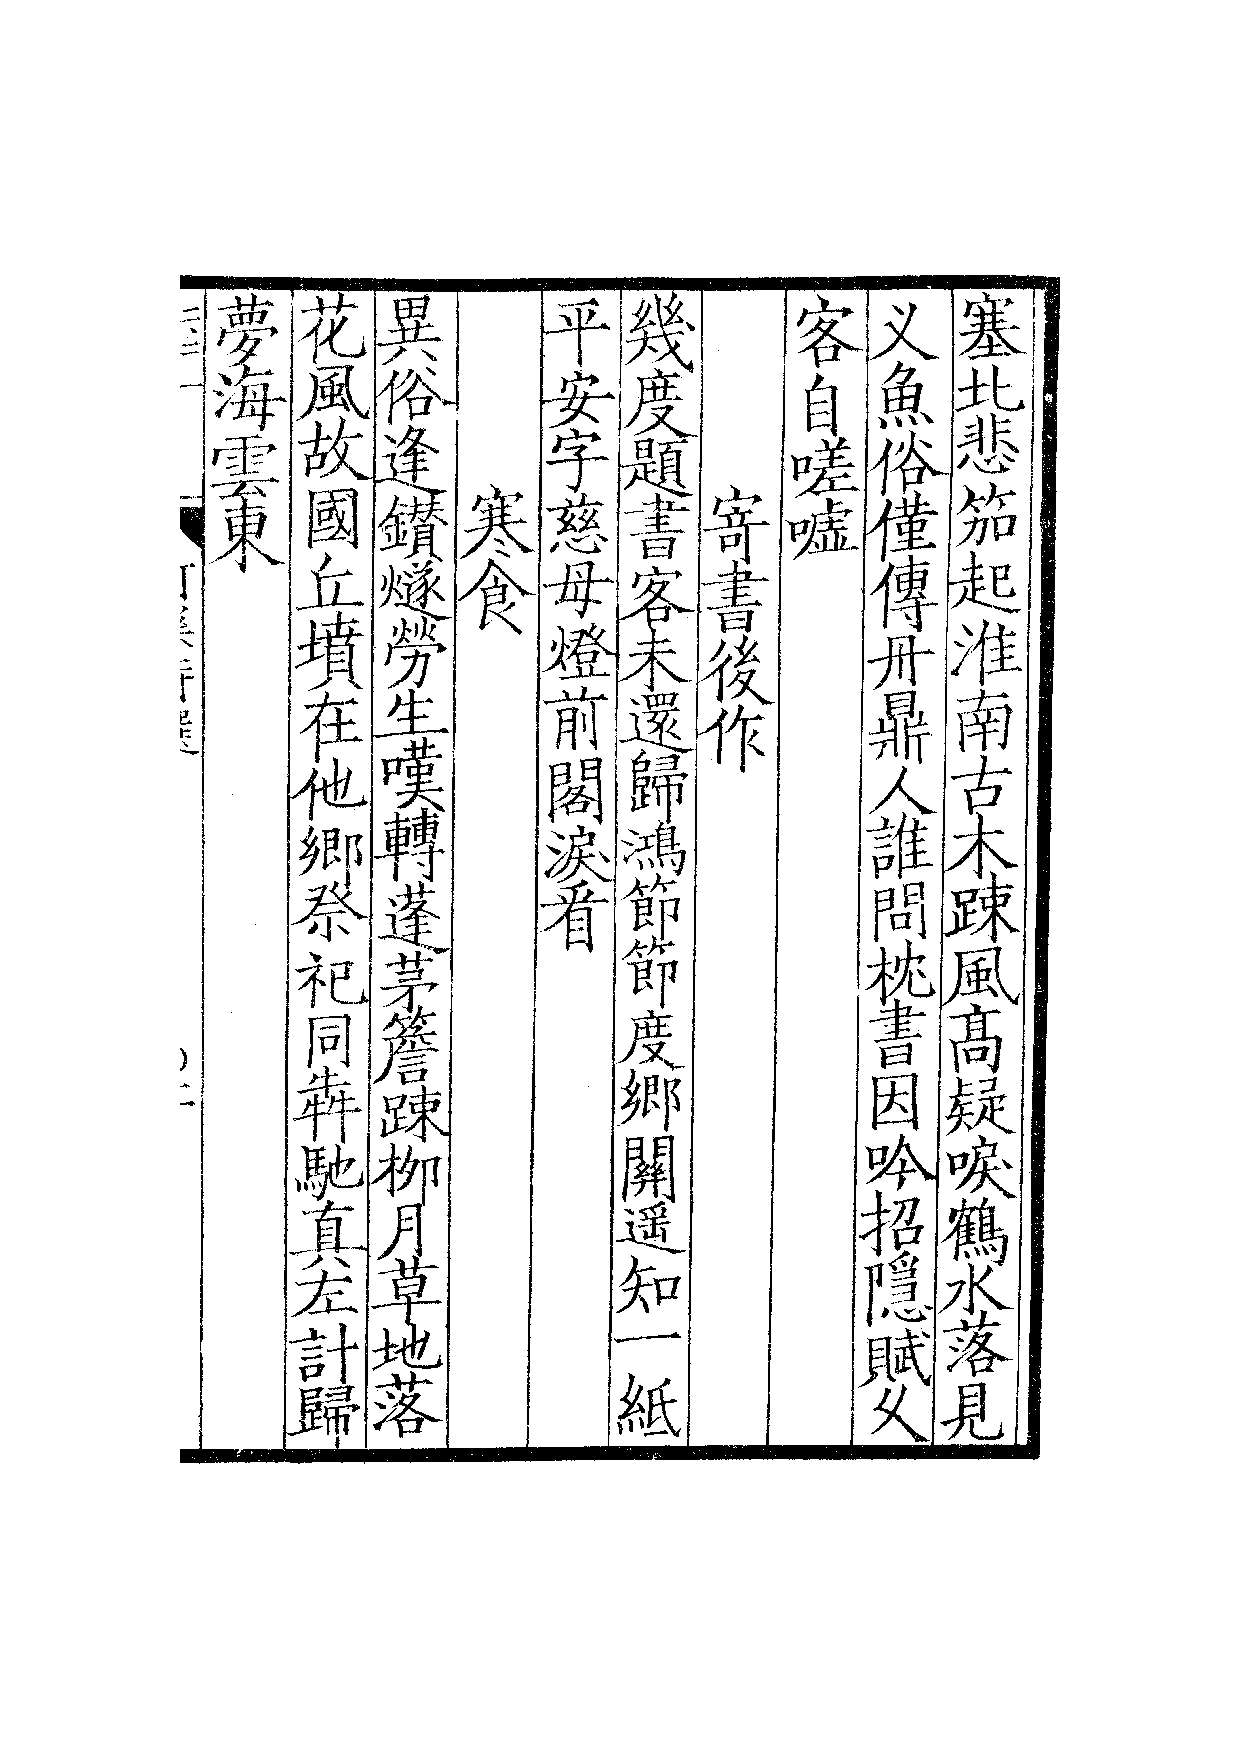 塞北悲笳起淮南古木踈風髙疑唳鶴水落見
义魚俗僅傳丹鼎人誰問枕書因吟招隱賦久
客自嗟噓
寄書後作
幾度題書客未還歸鴻節節度鄉關遥知一紙
平安字慈母燈前閣淚看
寒食
異俗逢鑚燧勞生嘆轉蓬茅簷踈栁月草地落
花風故國丘墳在他鄉祭祀同犇馳真左計歸
夢海雲東